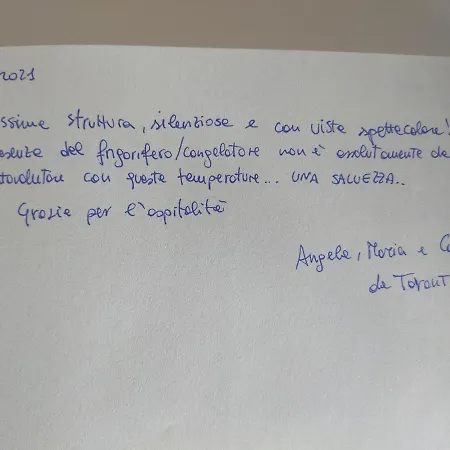 2021
ssima struttura, silenziosa e con vista spettacolare!
esenza del frigorifero/congelatore non è assolutamente da
ttovalutare con queste temperature... UNA SALVEZZA..
Grazie per l'ospitalità
Angela, Maria e C
da Tarant